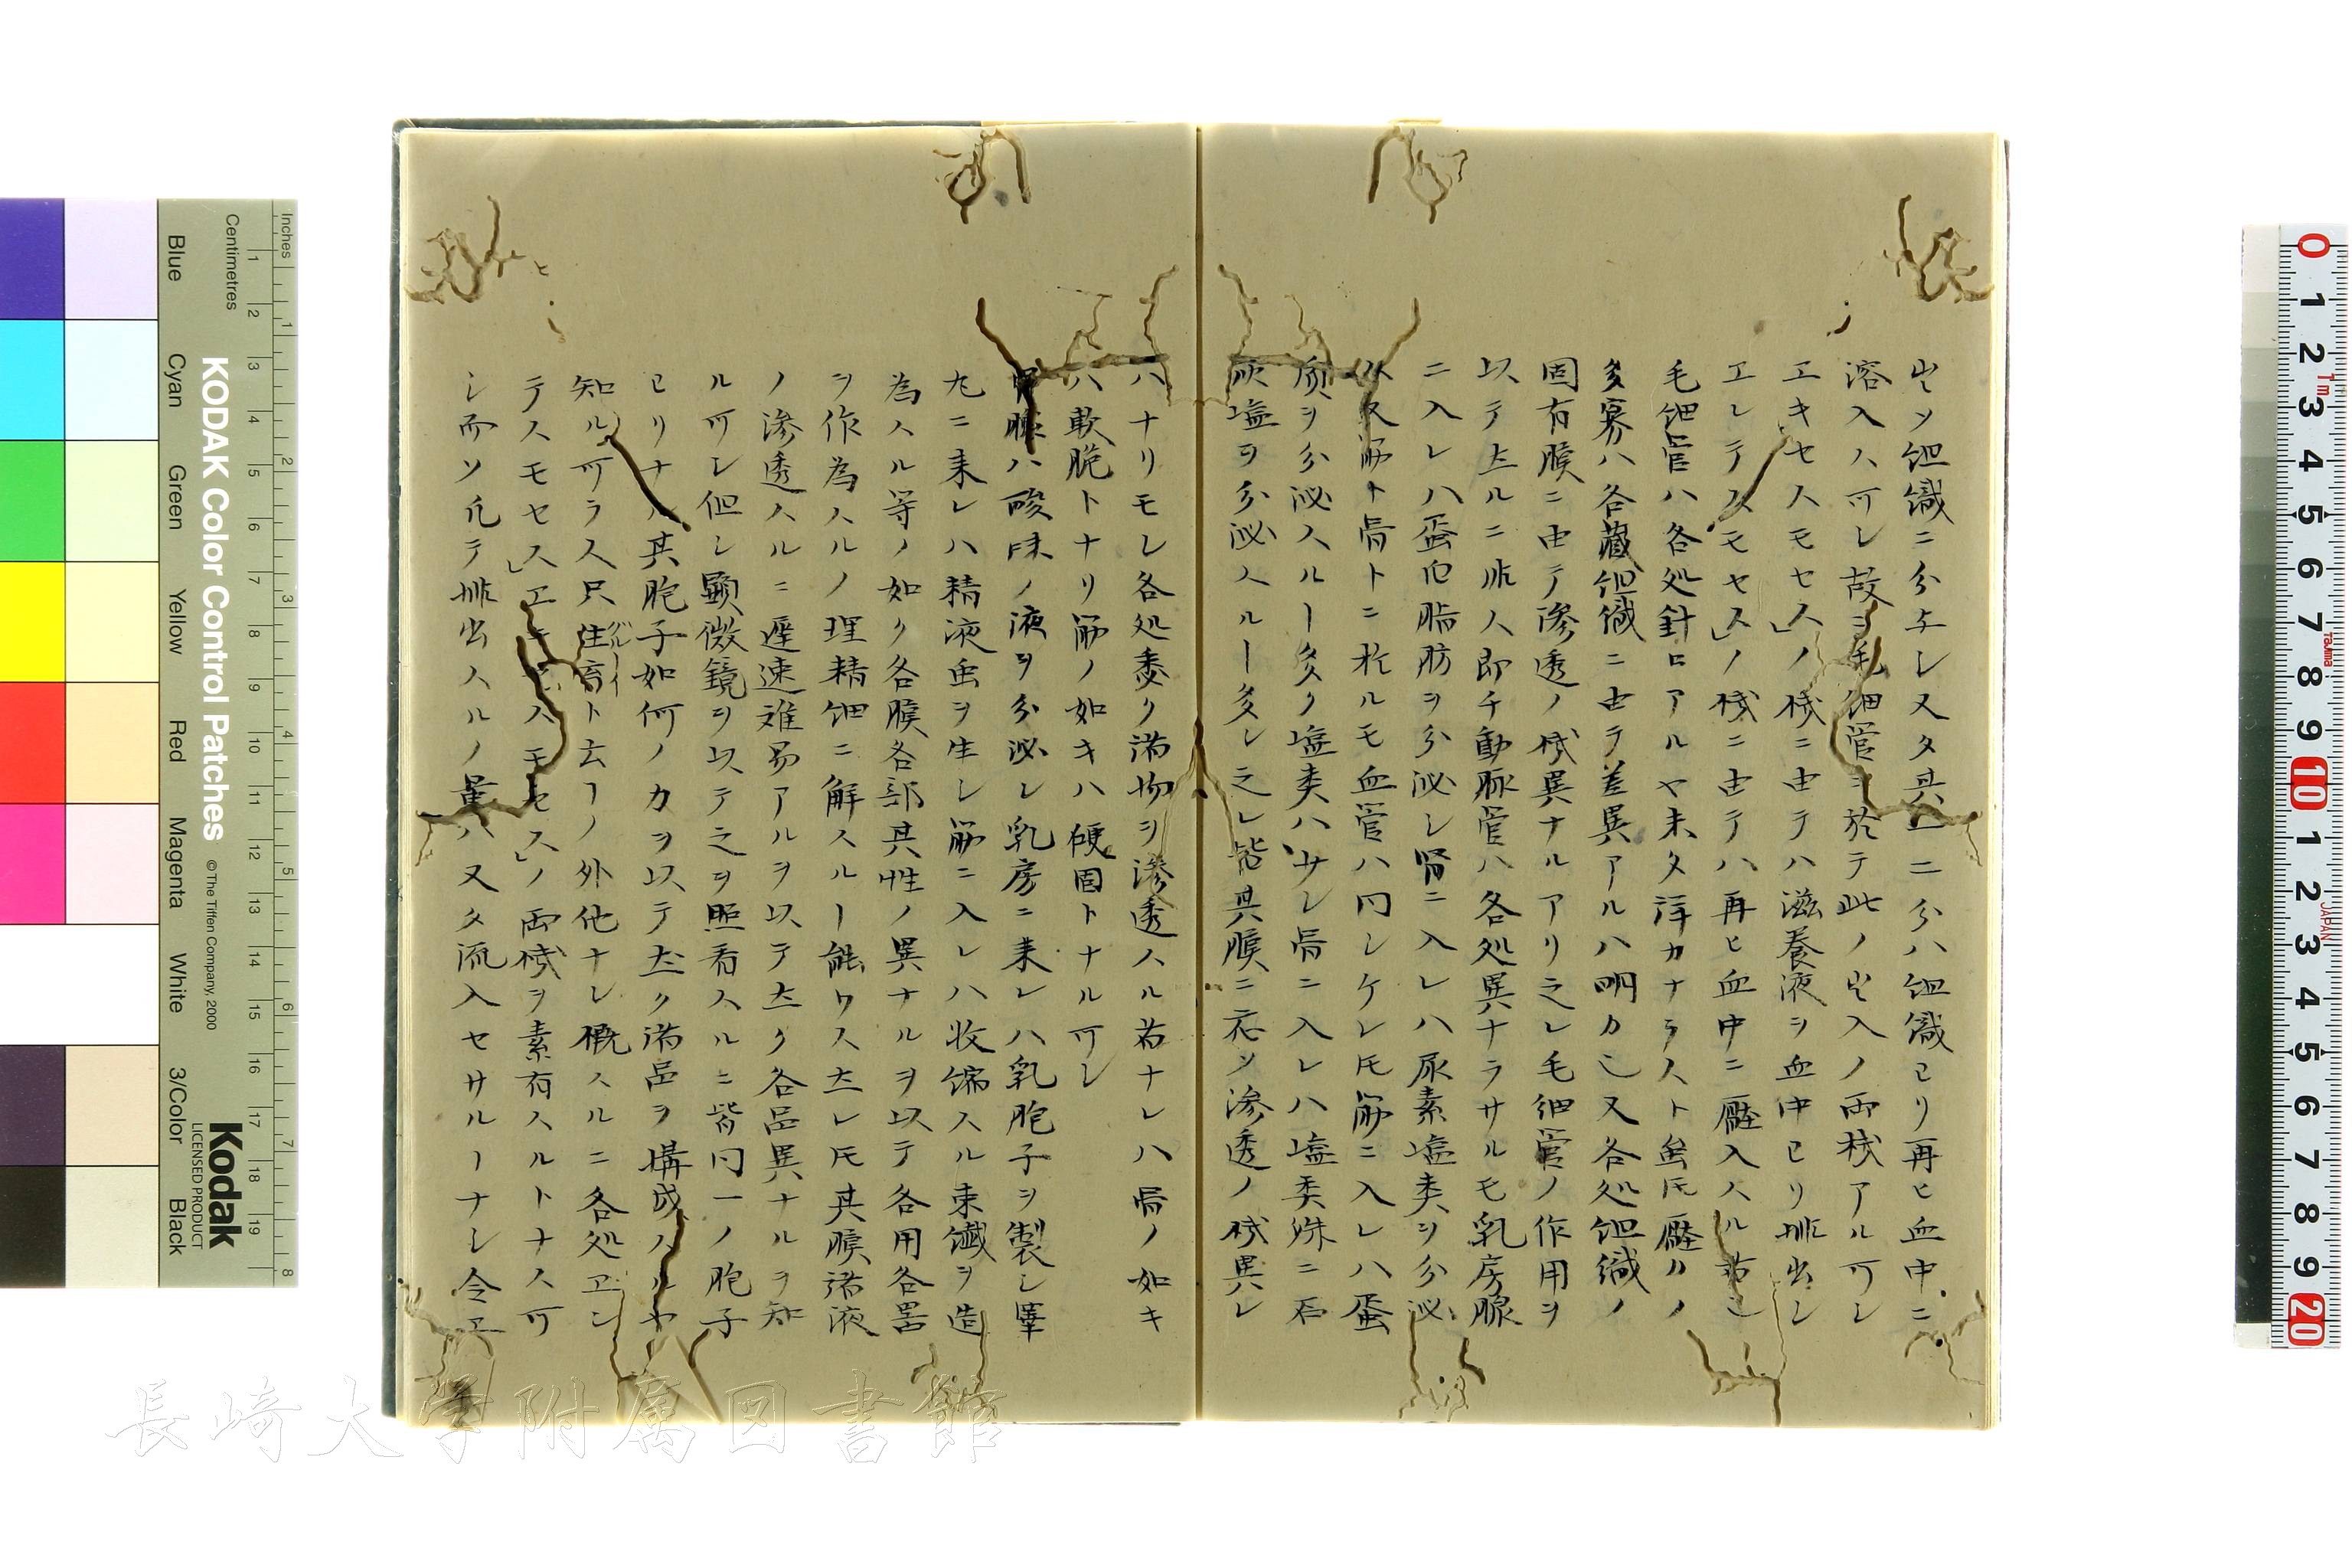 出ソ組織ニ分与シ又タ其ニ分ハ組織ヨリ再ヒ血中ニ
溶入ス可シ故ヲ毛細管ヨ於テ此ノ出入ノ両機アル可シ
エキセスモセス」ノ機ニ由テハ滋養液ヲ血中ヨリ排出シ
エレテスモセス」ノ機ニ由テハ再ヒ血中ニ歴入スル者也
毛細管ハ各処針口アルヤ未タ詳カナラスト虽𪜈歴力ノ
多寡ハ各蔵組織ニ由テ差異アルハ明カ也又各処組織ノ
固有膜ニ由テ滲透ノ機異ナルアリ之レ毛細管ノ作用ヲ
以テ左ルニ非ス即チ動脈管ハ各処異ナラサルモ乳房腺
ニ入レハ蛋白脂肪ヲ分泌シ腎ニ入レハ尿素塩类ヲ分泌
ス又筋ト骨トニ於ルモ血管ハ同シケレ𪜈筋ニ入レハ蛋
质ヲ分泌スルヿ多ク塩类ハ少シ骨ニ入レハ塩类殊ニ石
灰塩ヲ分泌スルヿ多シ之レ皆其膜ニ応ソ滲透ノ機異レ
ハナリモレ各処悉ク满物ヲ滲透スル者ナレハ骨ノ如キ
ハ軟脆トナリ筋ノ如キハ硬固トナル可シ
胃腺ハ酸味ノ液ヲ分泌シ乳房ニ来レハ乳胞子ヲ製シ睾
丸ニ来レハ精液虫ヲ生シ筋ニ入レハ收縮スル束纎ヲ造
為スル等ノ如ク各膜各部其性ノ異ナルヲ以テ各用各器
ヲ作為スルノ理精細ニ解スルヿ能ワス左レ𪜈其膜諸液
ノ滲透スルニ遲速难易アルヲ以テ左ク各品異ナルヲ知
ル可シ但シ顯微鏡ヲ以テ之ヲ照看スルニ皆同一ノ胞子
ヨリナル其胞子如何ノ力ヲ以テ左ク满品ヲ構成スルヤ
知ル可ラス只生育ト云フノ外他ナレ概スルニ各処エン
テスモセスエキスモセス」ノ両機ヲ素有スルトナス可
シ而ソ凢テ排出スルノ量ハ又タ流入セサルヿナシ今エ
KODAK Color Control Patches
Kodak
LICENSED PRODUCT
© The Tiffen Company, 2000
Inches
Centimetres
Blue
Cyan
Green
Yellow
Red
Magenta
White
3/Color
Black
長崎大学附属図書館